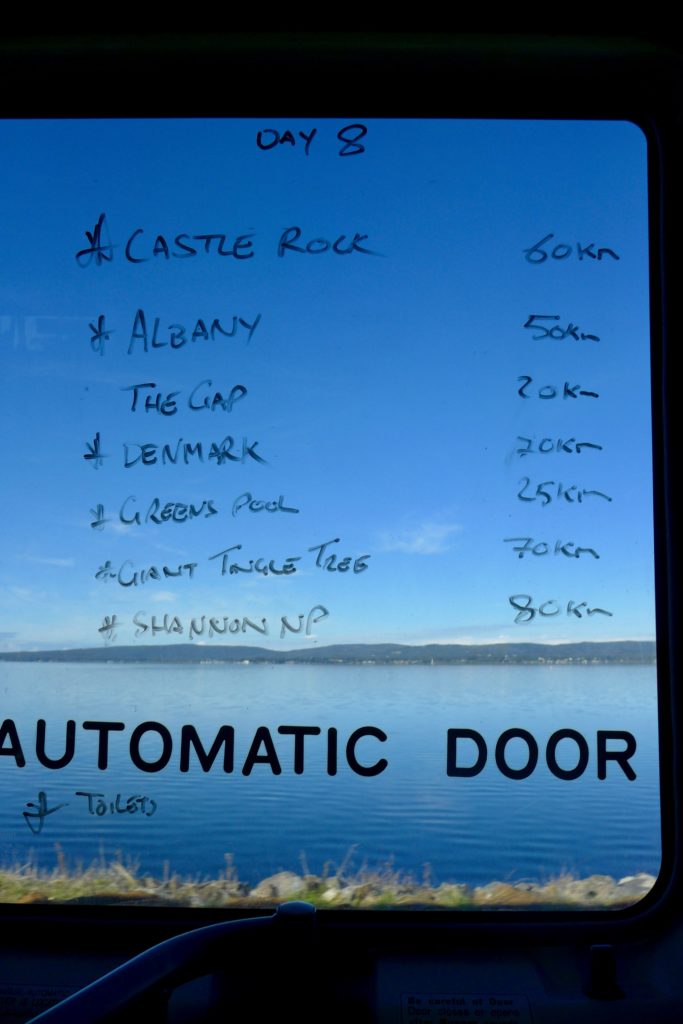 DAY 8
* CASTLE ROCK 60Km
* ALBANY 50Km
THE GAP 20Km
* DENMARK 70Km
* GREENS POOL 25Km
* GIANT TINGLE TREE 70Km
* SHANNON NP 80Km
AUTOMATIC DOOR
* TOILETS
Be careful of Door
Door closes or opens